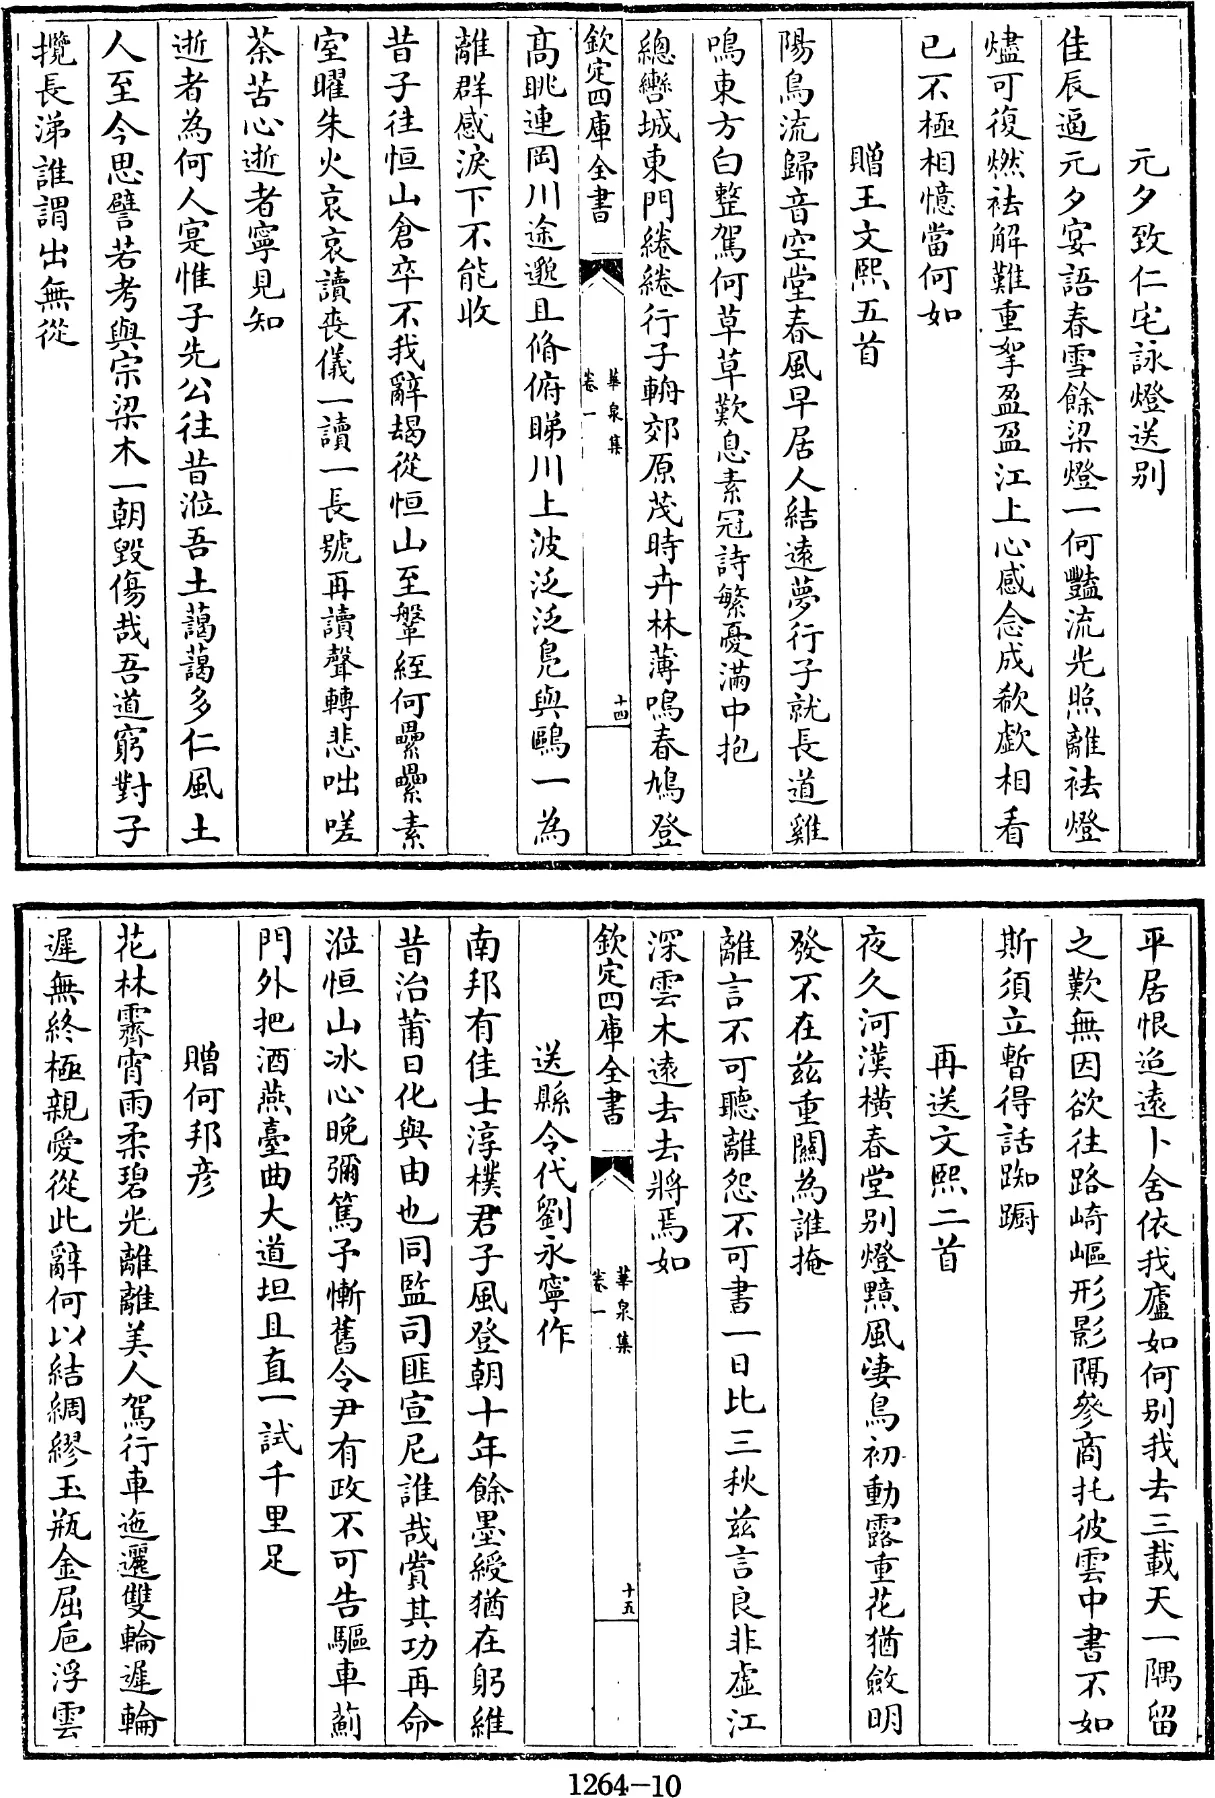 元夕致仁宅詠燈送别
佳辰逼元夕宴語春雪餘梁燈一何豔流光照離袪燈
燼可復燃袪解難重挐盈盈江上心感念成欷歔相看
已不極相憶當何如
贈王文熙五首
陽鳥流歸音空堂春風早居人結遠夢行子就長道雞
鳴東方白整駕何草草歎息素冠詩繁憂滿中抱
總轡城東門綣綣行子輈郊原茂時卉林薄鳴春鳩登
欽定四庫全書
華泉集
卷一
十四
髙眺連岡川途邈且脩俯睇川上波泛泛鳧與鷗一為
離群感淚下不能收
昔子往恒山倉卒不我辭朅從恒山至鞶絰何纍纍素
室曜朱火哀哀讀喪儀一讀一長號再讀聲轉悲咄嗟
荼苦心逝者寧見知
逝者為何人寔惟子先公往昔涖吾土藹藹多仁風土
人至今思譬若考與宗梁木一朝毀傷哉吾道窮對子
攬長涕誰謂出無從
平居恨迢遠卜舍依我廬如何别我去三載天一隅留
之歎無因欲往路崎嶇形影隔參商托彼雲中書不如
斯須立暫得話踟蹰
再送文熙二首
夜久河漢横春堂别燈黮風凄鳥初動露重花猶斂明
發不在兹重關為誰掩
離言不可聽離怨不可書一日比三秋兹言良非虚江
深雲木遠去去將焉如
欽定四庫全書
華泉集
卷一
十五
送縣令代劉永寧作
南邦有佳士淳樸君子風登朝十年餘墨綬猶在躬維
昔治莆日化與由也同監司匪宣尼誰哉賞其功再命
涖恒山冰心晚彌篤予慚舊令尹有政不可告驅車薊
門外把酒燕臺曲大道坦且直一試千里足
贈何邦彦
花林霽宵雨柔碧光離離美人駕行車迤邐雙輪遲輪
遲無終極親愛從此辭何以結綢繆玉瓶金屈巵浮雲
1264-10